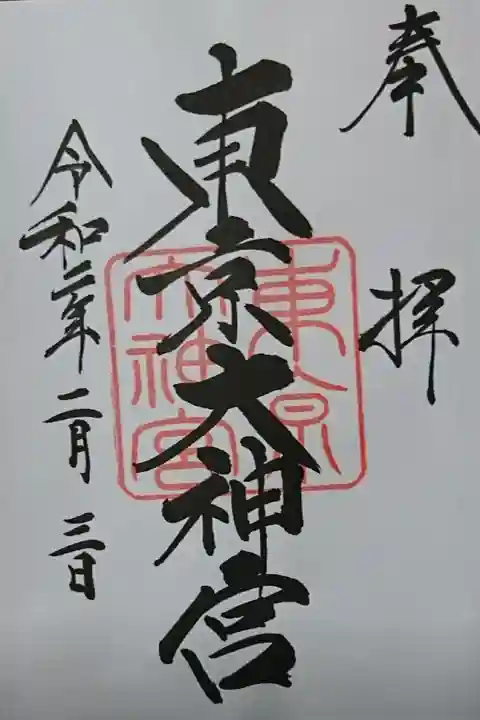 奉拝
東京大神宮
東京
大神宮
令和二年二月三日